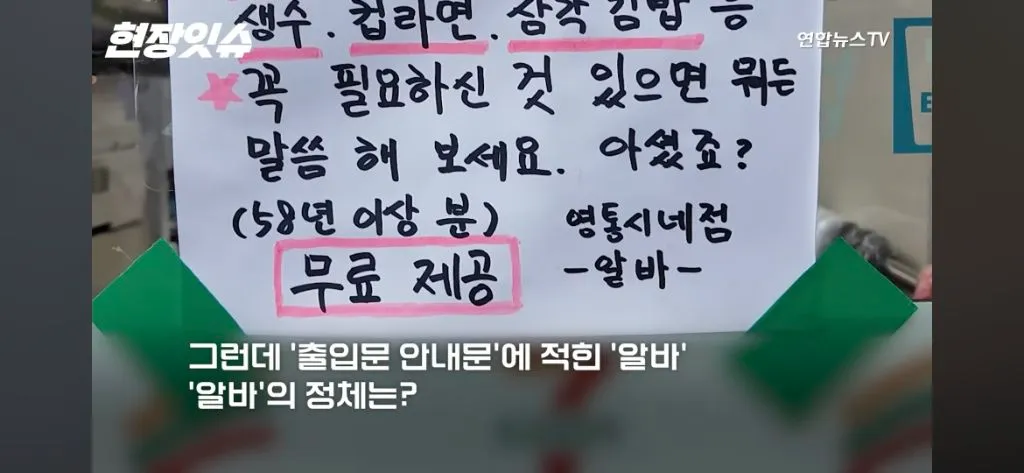 현장잇슈
연합뉴스TV
생수. 컵라면. 삼각 김밥 등
꼭 필요하신 것 있으면 뭐든
말씀 해 보세요. 아셨죠?
(58년 이상 분)
영통시네점
무료 제공
-알바-
그런데 '출입문 안내문'에 적힌 '알바'
'알바'의 정체는?